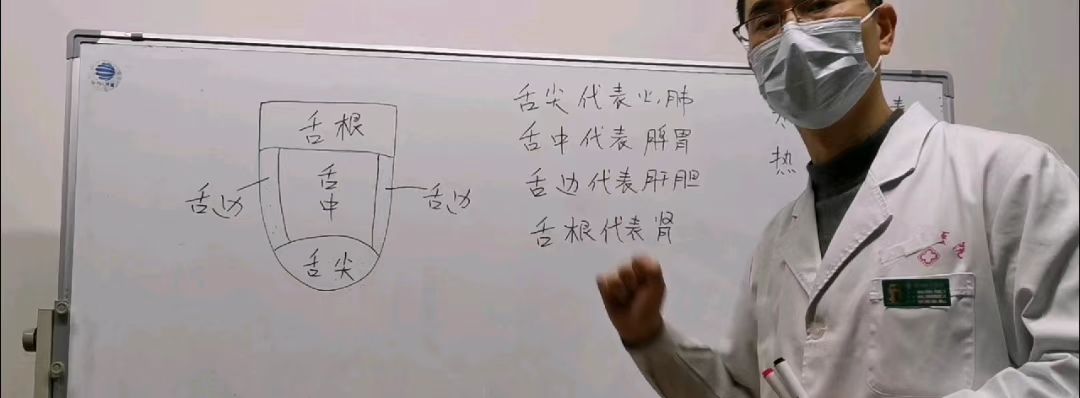 舌根
舌中
舌边
舌边
舌尖
舌尖代表心肺
舌中代表脾胃
舌边代表肝胆
舌根代表肾
热